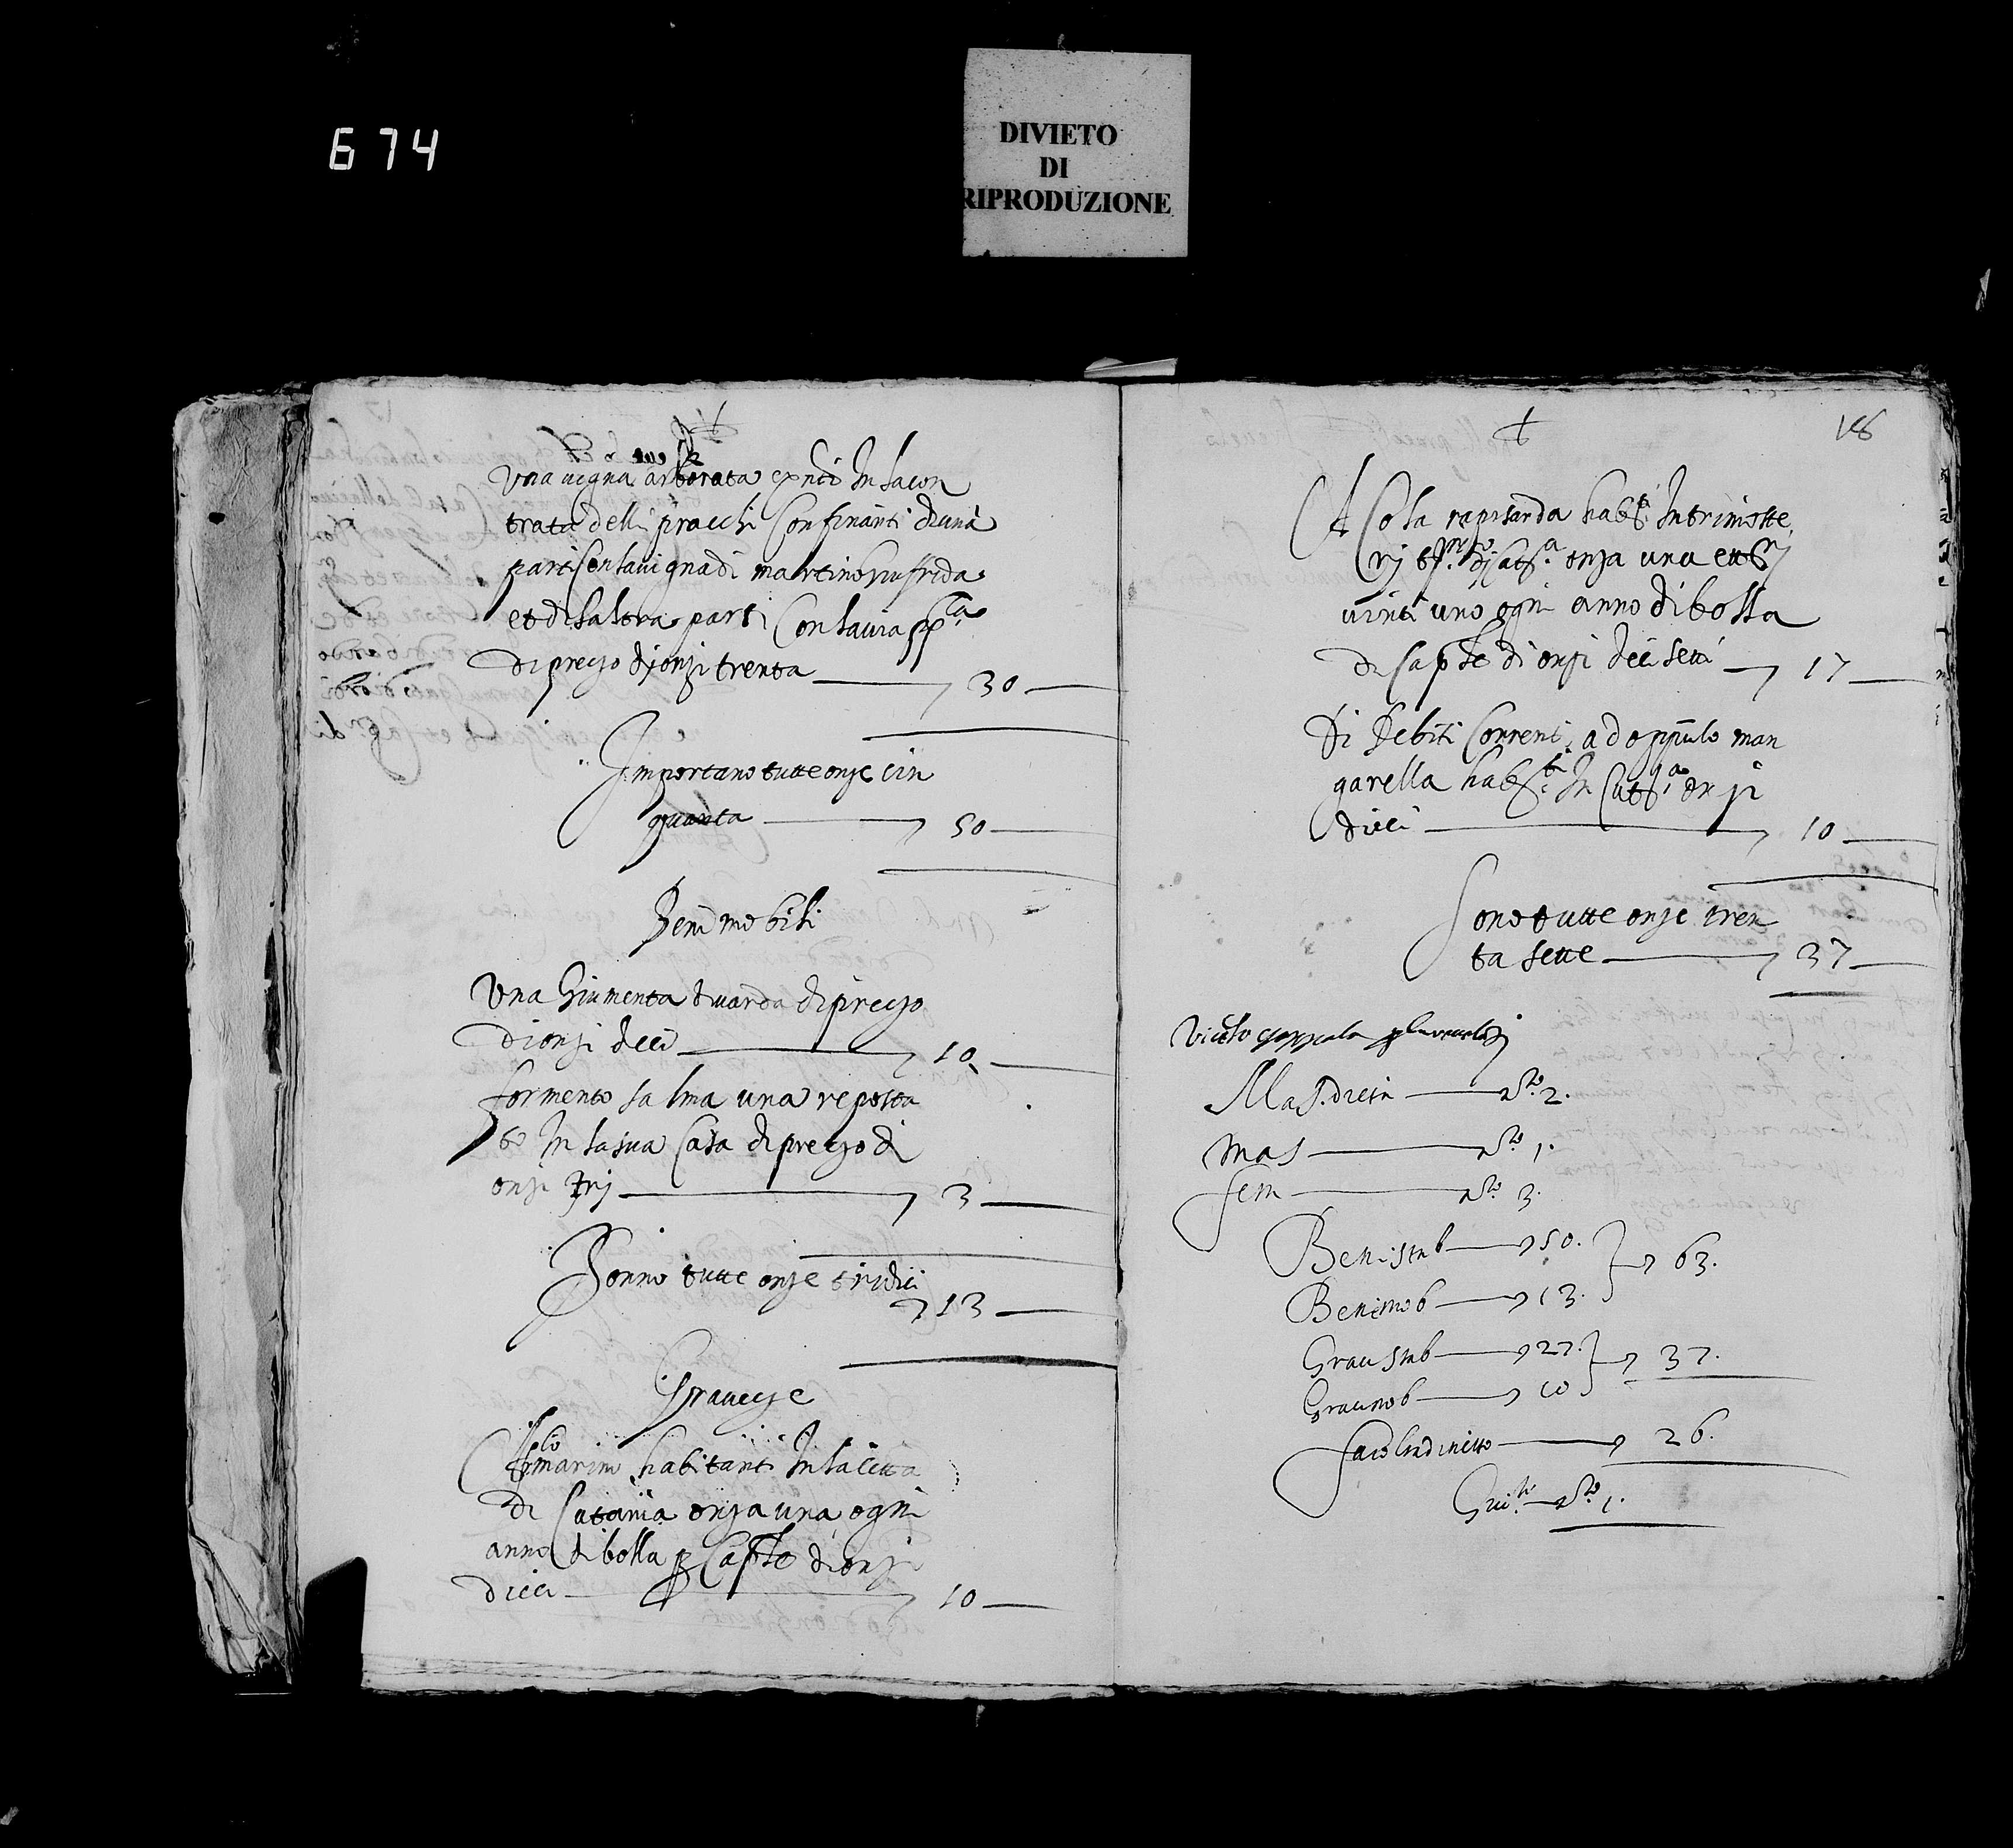 674
DIVIETO
DI
RIPRODUZIONE
Una vigna arborata in la con
trata delli pracchi Confinanti di una
parti con la vigna di martino giufrida
et di la ltra parti Con la via
di prezo di onzi trenta 30
Importano tutte onze cin
quanta 50
Beni mobili
Una Giumenta di prezo
di onzi deci 10
formento salma una reposta
to In la sua Casa di prezo di
onzi trij 3
Sonno tutte onze tridici
13
Graveze
marino habitanti In la citta
di Catania onza una ogni
anno di bolla p Caple di onzi
dieci 10
18
A Cola rapisarda Intrimiste
rij onza una et
vinti uno ogni anno di bolla
di Caple di onzi deci setti 17
Di Debiti Correnti a doppulo man
garella In onzi
dieci 10
Sono tutte onze tren
ta sette 37
Mas. dicin n.o 2.
mas n.o 1.
fem n.o 3.
Beni stab 50. 63.
Beni mob 13.
Grav stab 27. 37.
Grav mob 10
26.
n.o 1.